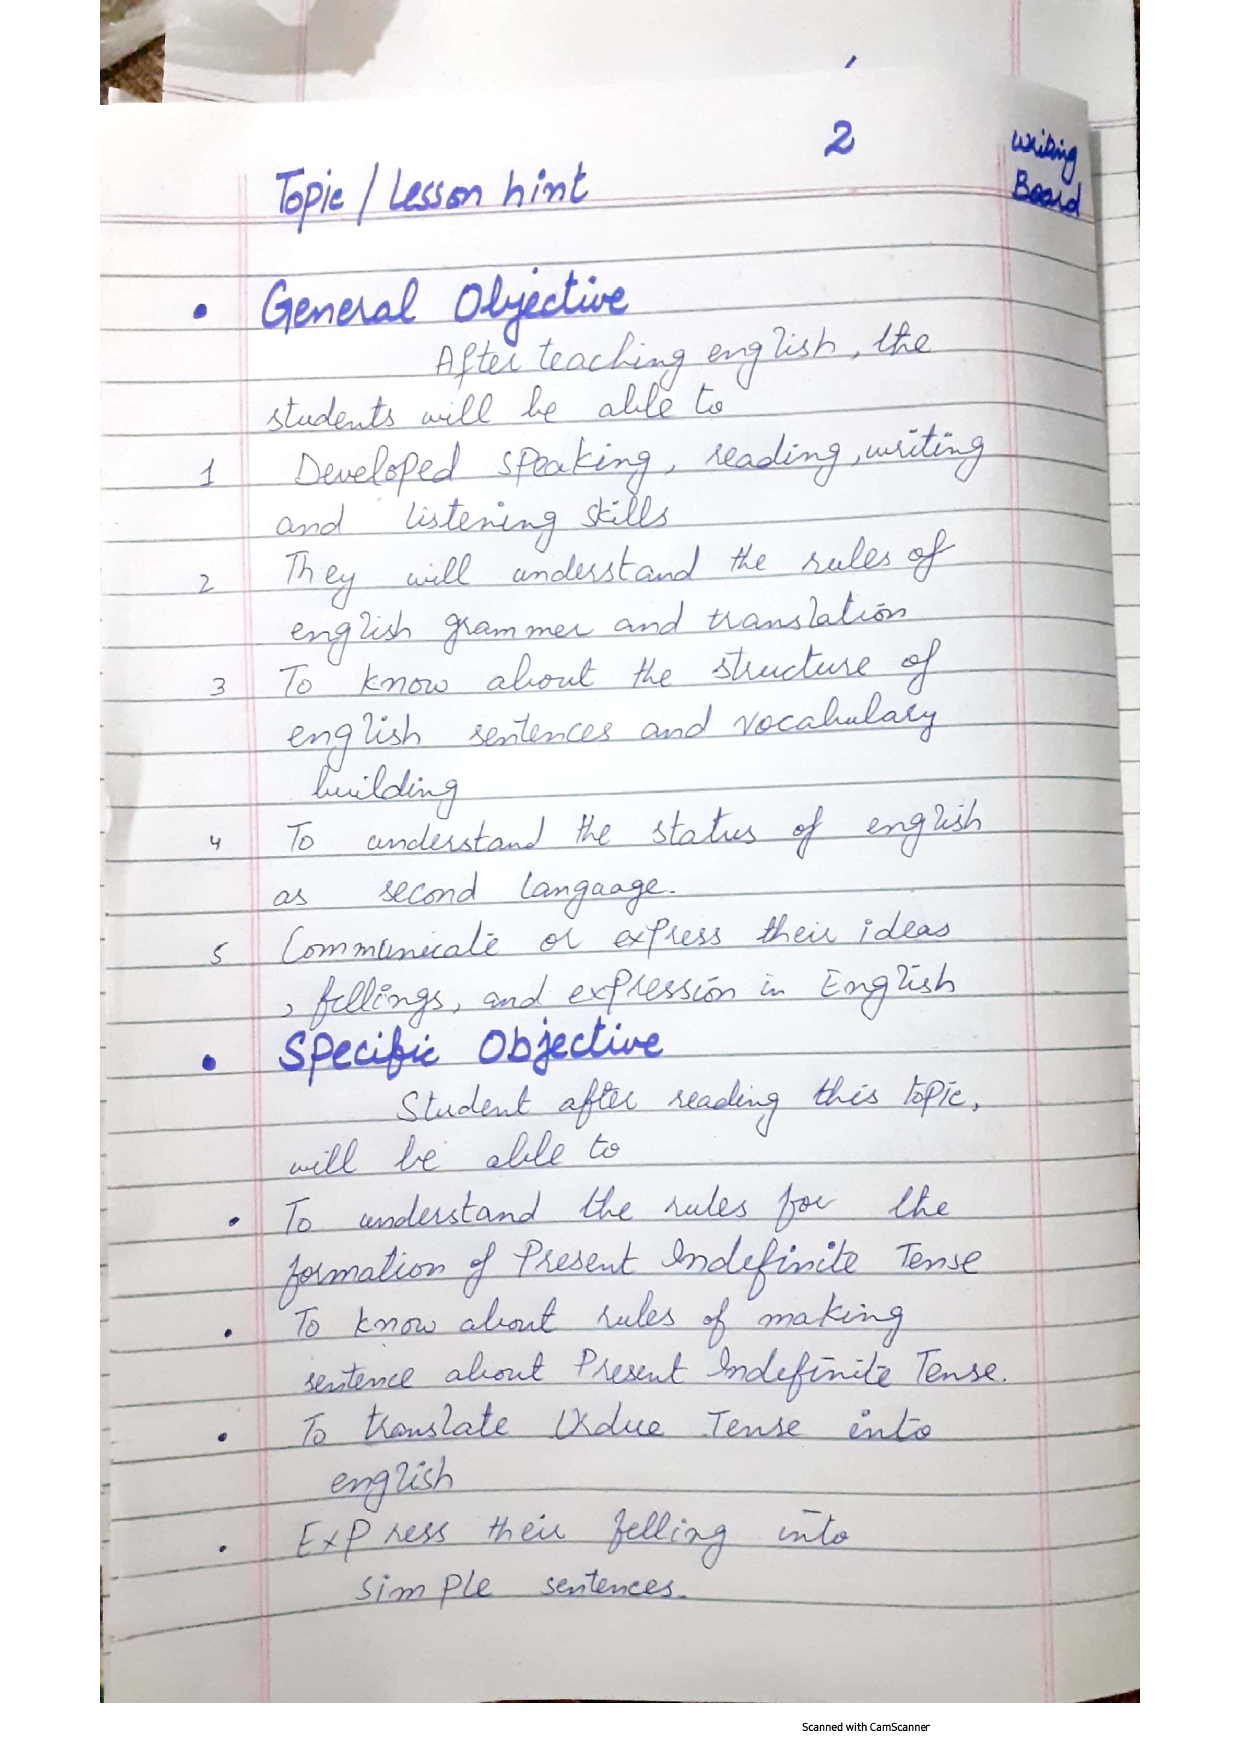 2
Writing
Board
Topic / Lesson hint
• General Objective
After teaching english, the
students will be able to
1 Developed speaking, reading, writing
and listening skills
2 They will understand the rules of
english grammer and translation
3 To know about the structure of
english sentences and vocabulary
building
4 To understand the status of english
as second langaage.
5 Communicate or express their ideas
, fellings, and expression in English
• Specific Objective
Student after reading this topic,
will be able to
• To understand the rules for the
formation of Present Indefinite Tense
• To know about rules of making
sentence about Present Indefinite Tense.
• To translate Urdue Tense into
english
• Express their felling into
simple sentences.
Scanned with CamScanner